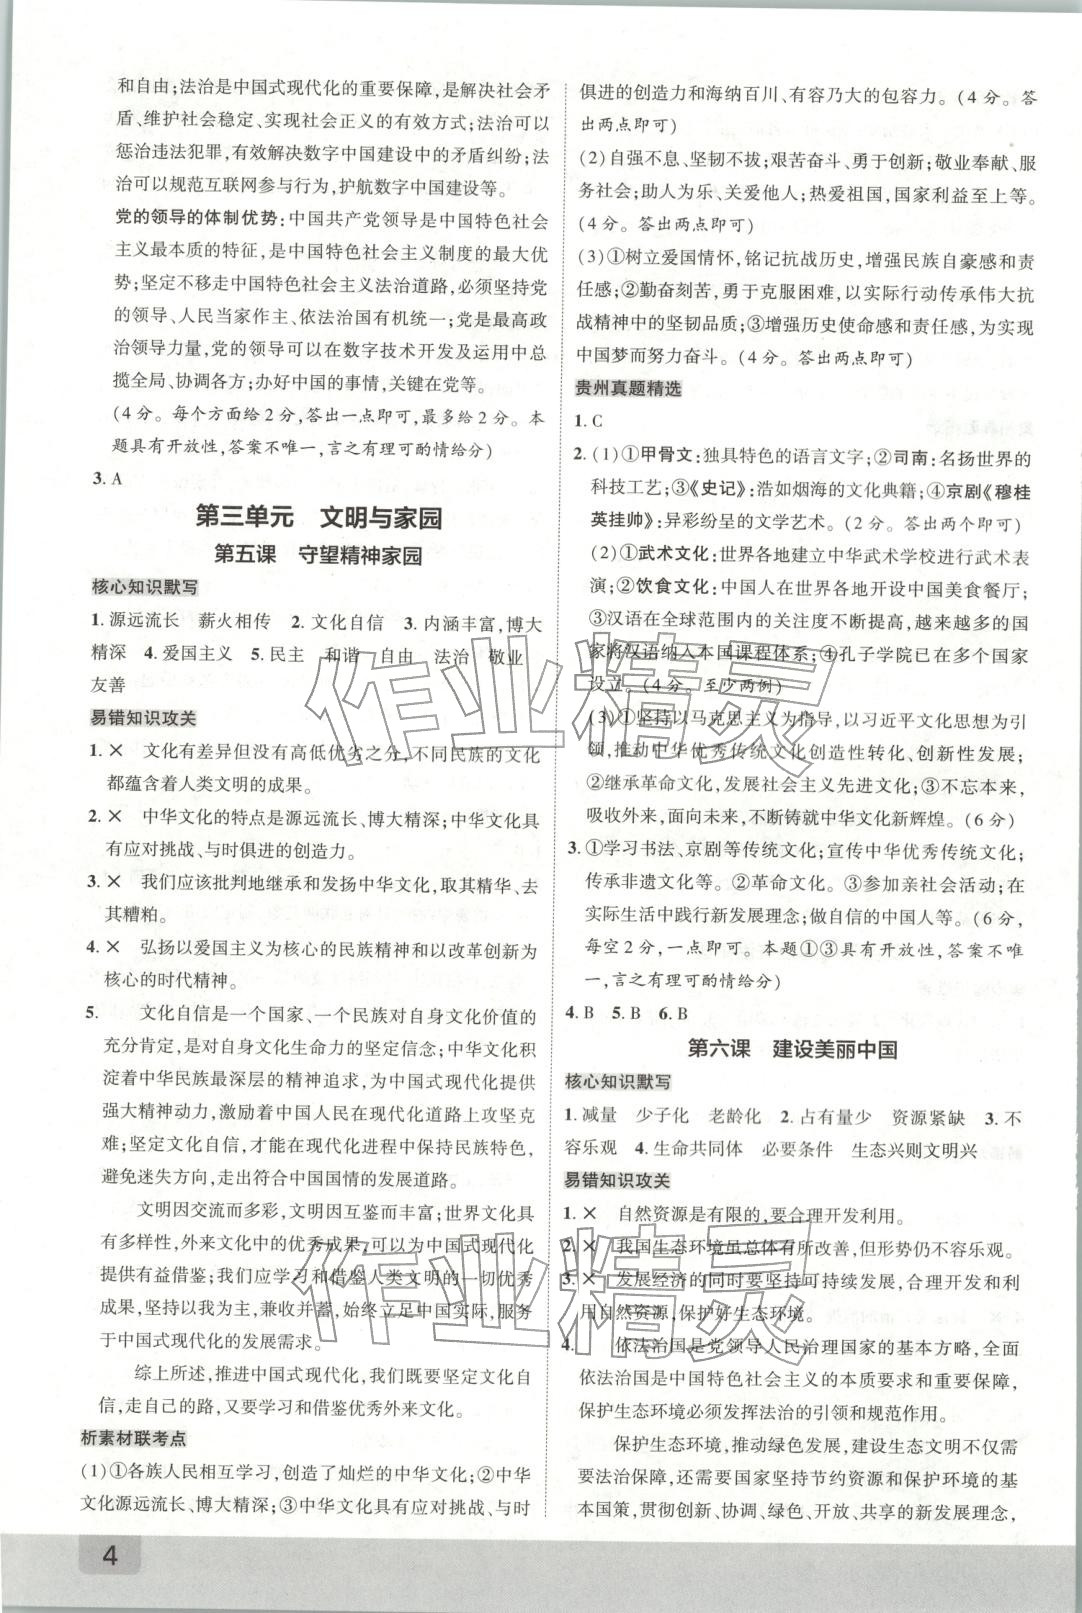 和自由;法治是中国式现代化的重要保障,是解决社会矛
盾、维护社会稳定、实现社会正义的有效方式;法治可以
惩治违法犯罪,有效解决数字中国建设中的矛盾纠纷;法
治可以规范互联网参与行为,护航数字中国建设等。
党的领导的体制优势:中国共产党领导是中国特色社会
主义最本质的特征,是中国特色社会主义制度的最大优
势;坚定不移走中国特色社会主义法治道路,必须坚持党
的领导、人民当家作主、依法治国有机统一;党是最高政
治领导力量,党的领导可以在数字技术开发及运用中总
揽全局、协调各方;办好中国的事情,关键在党等。
(4分。每个方面给2分,答出一点即可,最多给2分。本
题具有开放性,答案不唯一,言之有理可酌情给分)
3. A
第三单元 文明与家园
第五课 守望精神家园
核心知识默写
1. 源远流长 薪火相传 2. 文化自信 3. 内涵丰富,博大
精深 4. 爱国主义 5. 民主 和谐 自由 法治 敬业
友善
易错知识攻关
1. ✕ 文化有差异但没有高低优劣之分,不同民族的文化
都蕴含着人类文明的成果。
2. ✕ 中华文化的特点是源远流长、博大精深;中华文化具
有应对挑战、与时俱进的创造力。
3. ✕ 我们应该批判地继承和发扬中华文化,取其精华、去
其糟粕。
4. ✕ 弘扬以爱国主义为核心的民族精神和以改革创新为
核心的时代精神。
5. 文化自信是一个国家、一个民族对自身文化价值的
充分肯定,是对自身文化生命力的坚定信念;中华文化积
淀着中华民族最深层的精神追求,为中国式现代化提供
强大精神力量,激励着中国人民在现代化道路上攻坚克
难;坚定文化自信,才能在现代化进程中保持民族特色,
避免迷失方向,走出符合中国国情的发展道路。
文明因交流而多彩,文明因互鉴而丰富;世界文化具
有多样性,外来文化中的优秀成果,可以为中国式现代化
提供有益借鉴;我们应学习和借鉴人类文明的一切优秀
成果,坚持以我为主,兼收并蓄,始终立足中国实际,服务
于中国式现代化的发展需求。
综上所述,推进中国式现代化,我们既要坚定文化自
信,走自己的路,又要学习和借鉴优秀外来文化。
析素材联考点
(1)①各族人民相互学习,创造了灿烂的中华文化;②中华
文化源远流长、博大精深;③中华文化具有应对挑战、与时
4
俱进的创造力和海纳百川、有容乃大的包容力。(4分。答
出两点即可)
(2)自强不息、坚韧不拔;艰苦奋斗、勇于创新;敬业奉献、
服务社会;助人为乐、关爱他人;热爱祖国,国家利益至上等。
(4分。答出两点即可)
(3)①树立爱国情怀,铭记抗战历史,增强民族自豪感和责
任感;②勤奋刻苦,勇于克服困难,以实际行动传承伟大抗
战精神中的坚韧品质;③增强历史使命感和责任感,为实现
中国梦而努力奋斗。(4分。答出两点即可)
贵州真题精选
1. C
2. (1)①甲骨文:独具特色的语言文字;②司南:名扬世界的
科技工艺;③《史记》:浩如烟海的文化典籍;④京剧《穆桂
英挂帅》:异彩纷呈的文学艺术。(2分。答出两个即可)
(2)①武术文化:世界各地建立中华武术学校进行武术表
演;②饮食文化:中国人在世界各地开设中国美食餐厅;
③汉语在全球范围内的关注度不断提高,越来越多的国
家将汉语纳入本国课程体系;④孔子学院已在多个国家
设立。(4分。至少两例)
(3)①坚持以马克思主义为指导,以习近平文化思想为引
领,推动中华优秀传统文化创造性转化、创新性发展;
②继承革命文化,发展社会主义先进文化;③不忘本来,
吸收外来,面向未来,不断铸就中华文化新辉煌。(6分)
3. ①学习书法、京剧等传统文化;宣传中华优秀传统文化;
传承非遗文化等。②革命文化。③参加亲社会活动;在
实际生活中践行新发展理念;做自信的中国人等。(6分,
每空2分,一点即可。本题①③具有开放性,答案不唯
一,言之有理可酌情给分)
4. B 5. B 6. B
第六课 建设美丽中国
核心知识默写
1. 减量 少子化 老龄化 2. 占有量少 资源紧缺 3. 不
容乐观 4. 生命共同体 必要条件 生态兴则文明兴
易错知识攻关
1. ✕ 自然资源是有限的,要合理开发利用。
2. ✕ 我国生态环境虽总体有所改善,但形势仍不容乐观。
3. ✕ 发展经济的同时要坚持可持续发展,合理开发和利
用自然资源,保护好生态环境。
4. 依法治国是党领导人民治理国家的基本方略,全面
依法治国是中国特色社会主义的本质要求和重要保障,
保护生态环境必须发挥法治的引领和规范作用。
保护生态环境,推动绿色发展,建设生态文明不仅需
要法治保障,还需要国家坚持节约资源和保护环境的基
本国策,贯彻创新、协调、绿色、开放、共享的新发展理念,
作业精灵
作业精灵